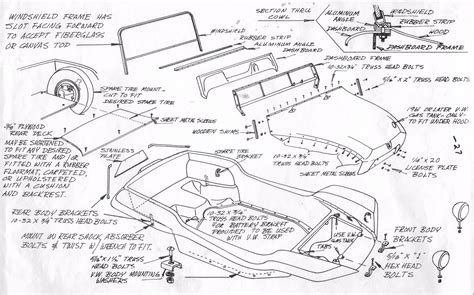 WINDSHIELD FRAME HAS
SLOT FACING FORWARD
TO ACCEPT FIBERGLASS
OR CANVAS TOP
SECTION THRU
COWL
ALUMINUM
ANGLE
WINDSHIELD
RUBBER STRIP
HOOD
DASHBOARD FRAME
WINDSHIELD
RUBBER STRIP
ALUMINUM ANGLE
DASHBOARD FRAME
10-32 x 3/4" TRUSS HEAD BOLTS
5/16" x 2" TRUSS HEAD BOLTS
SPARE TIRE MOUNT-
CUT TO FIT
DESIRED SPARE TIRE
SHEET METAL SCREWS
WOODEN SHIMS
1961 OR LATER V.W.
GAS TANK - ONLY
TO FIT UNDER HOOD
-27-
3/4" PLYWOOD
REAR DECK
MAY BE SHORTENED
TO FIT ANY DESIRED
SPARE TIRE AND /
OR FITTED WITH A RUBBER
FLOORMAT, CARPETED,
OR UPHOLSTERED
WITH A CUSHION
AND BACKREST.
STAINLESS
PLATE
SPARE TIRE
BRACKET
SHEET METAL SCREWS
1/4" x 20
LICENSE PLATE
BOLTS
REAR BODY BRACKETS
10-32 x 3/4 TRUSS HEAD BOLTS
10-32 x 3/4"
TRUSS HEAD BOLTS
FOR BATTERY BRACKET
PROVIDED TO BE
USED WITH
V.W. STRAP
MOUNT W/ REAR SHOCK ABSORBER
BOLTS & TWIST W/ WRENCH TO FIT.
USE V.W.
GAS TANK
TABS
5/16 x 1 1/2" TRUSS
HEAD BOLTS
V.W. BODY MOUNTING
WASHERS
FRONT BODY
BRACKETS
5/16" x 1"
HEX HEAD
BOLTS